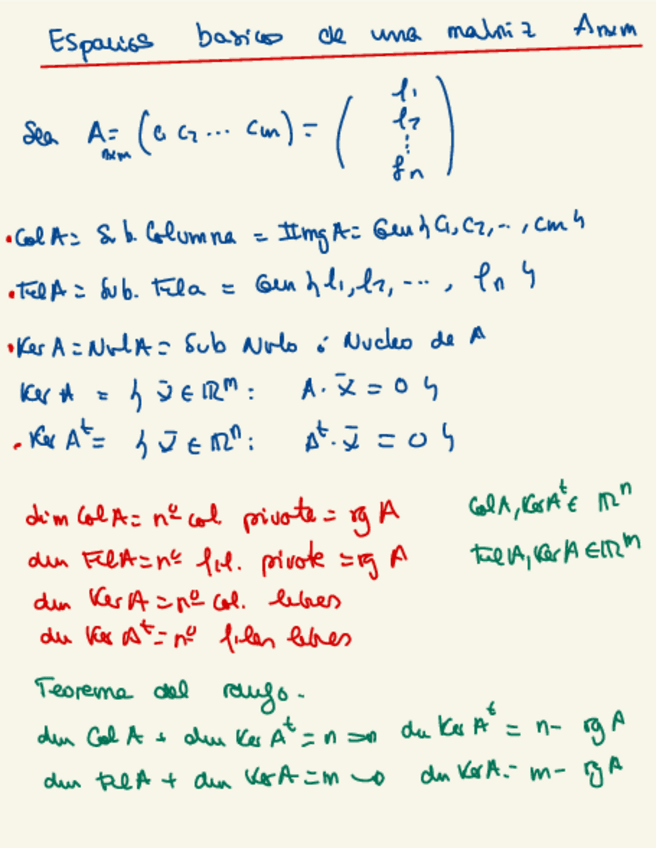 Espacios basicos de una matriz Anxm
Sea A = (c1 c2 ... cm) = ( f1
nxm f2
⋮
fn )
• Col A = Sub. Columna = Img A = Gen { c1, c2, .., cm }
• Fil A = Sub. Fila = Gen { f1, f2, ..., fn }
• Ker A = Nul A = Sub Nulo ó Nucleo de A
Ker A = { v̄ ∈ ℝ^m : A · x̄ = 0 }
• Ker A^t = { v̄ ∈ ℝ^n : A^t · x̄ = 0 }
dim Col A = nº col pivote = rg A
dim Fil A = nº fil. pivote = rg A
dim Ker A = nº col. libres
dim Ker A^t = nº filas libres
Col A, Ker A^t ∈ ℝ^n
Fil A, Ker A ∈ ℝ^m
Teorema del rango.
dim Col A + dim Ker A^t = n => dim Ker A^t = n - rg A
dim Fil A + dim Ker A = m -> dim Ker A = m - rg A